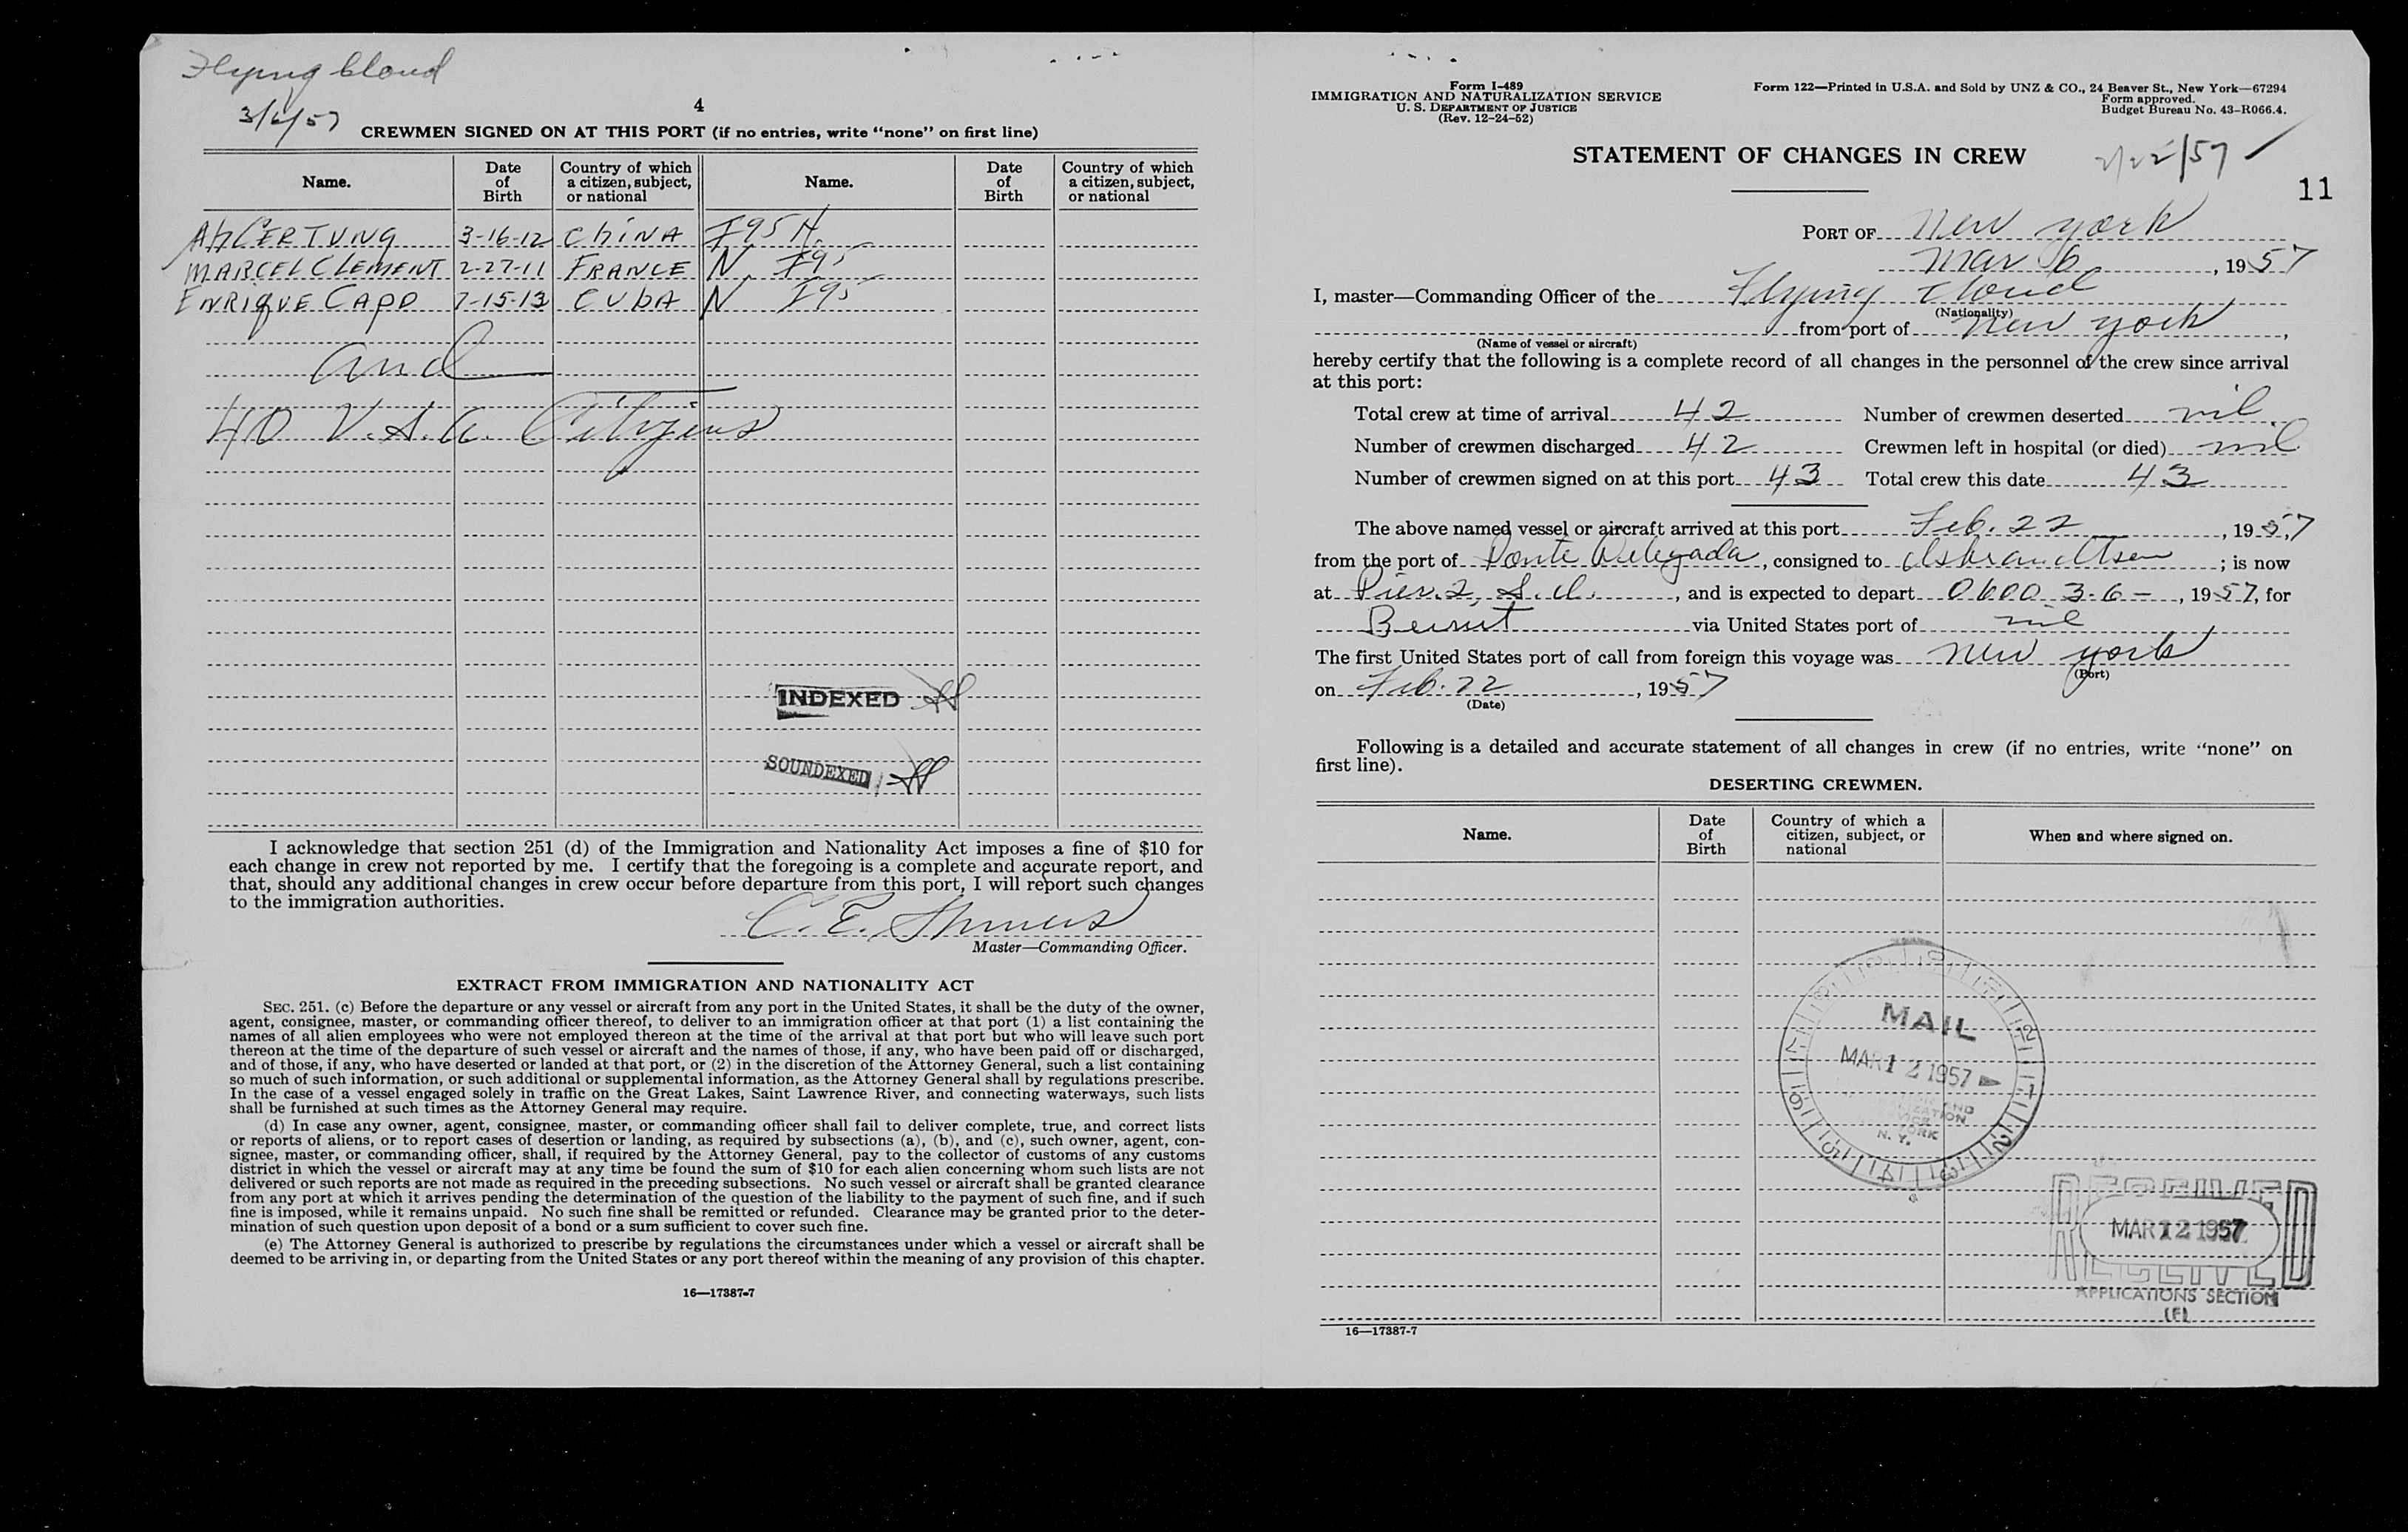 Flying Cloud
3/6/57
4
CREWMEN SIGNED ON AT THIS PORT (if no entries, write "none" on first line)
Name. Date of Birth Country of which a citizen, subject, or national Name. Date of Birth Country of which a citizen, subject, or national
Ah CER TUNG 3-16-12 ChINA I95 H.
MARCEL CLEMENT 2-27-11 FRANCE N I95
ENRIQUE CAPO 7-15-13 CUbA N I95
and
40 U.S.A. Citizens
INDEXED
SOUNDEXED
I acknowledge that section 251 (d) of the Immigration and Nationality Act imposes a fine of $10 for
each change in crew not reported by me. I certify that the foregoing is a complete and accurate report, and
that, should any additional changes in crew occur before departure from this port, I will report such changes
to the immigration authorities.
C. E.
Master—Commanding Officer.
EXTRACT FROM IMMIGRATION AND NATIONALITY ACT
SEC. 251. (c) Before the departure or any vessel or aircraft from any port in the United States, it shall be the duty of the owner,
agent, consignee, master, or commanding officer thereof, to deliver to an immigration officer at that port (1) a list containing the
names of all alien employees who were not employed thereon at the time of the arrival at that port but who will leave such port
thereon at the time of the departure of such vessel or aircraft and the names of those, if any, who have been paid off or discharged,
and of those, if any, who have deserted or landed at that port, or (2) in the discretion of the Attorney General, such a list containing
so much of such information, or such additional or supplemental information, as the Attorney General shall by regulations prescribe.
In the case of a vessel engaged solely in traffic on the Great Lakes, Saint Lawrence River, and connecting waterways, such lists
shall be furnished at such times as the Attorney General may require.
(d) In case any owner, agent, consignee, master, or commanding officer shall fail to deliver complete, true, and correct lists
or reports of aliens, or to report cases of desertion or landing, as required by subsections (a), (b), and (c), such owner, agent, con-
signee, master, or commanding officer, shall, if required by the Attorney General, pay to the collector of customs of any customs
district in which the vessel or aircraft may at any time be found the sum of $10 for each alien concerning whom such lists are not
delivered or such reports are not made as required in the preceding subsections. No such vessel or aircraft shall be granted clearance
from any port at which it arrives pending the determination of the question of the liability to the payment of such fine, and if such
fine is imposed, while it remains unpaid. No such fine shall be remitted or refunded. Clearance may be granted prior to the deter-
mination of such question upon deposit of a bond or a sum sufficient to cover such fine.
(e) The Attorney General is authorized to prescribe by regulations the circumstances under which a vessel or aircraft shall be
deemed to be arriving in, or departing from the United States or any port thereof within the meaning of any provision of this chapter.
16—17387-7
Form I-489
IMMIGRATION AND NATURALIZATION SERVICE
U. S. DEPARTMENT OF JUSTICE
(Rev. 12-24-52)
Form 122—Printed in U.S.A. and Sold by UNZ & CO., 24 Beaver St., New York—67294
Form approved.
Budget Bureau No. 43-R066.4.
STATEMENT OF CHANGES IN CREW
2/22/57
11
PORT OF New York
Mar 6, 1957
I, master—Commanding Officer of the Flying Cloud
(Nationality)
from port of New York,
(Name of vessel or aircraft)
hereby certify that the following is a complete record of all changes in the personnel of the crew since arrival
at this port:
Total crew at time of arrival 42 Number of crewmen deserted nil
Number of crewmen discharged 42 Crewmen left in hospital (or died) nil
Number of crewmen signed on at this port 43 Total crew this date 43
The above named vessel or aircraft arrived at this port Feb. 22, 1957
from the port of Ponte Delegada, consigned to Isbrandtsen; is now
at Pier 2, and is expected to depart 0600 3-6-, 1957, for
Beirut via United States port of nil
The first United States port of call from foreign this voyage was New York
(Port)
on Feb. 22, 1957
(Date)
Following is a detailed and accurate statement of all changes in crew (if no entries, write "none" on
first line).
DESERTING CREWMEN.
Name. Date of Birth Country of which a citizen, subject, or national When and where signed on.
MAIL
MAR 12 1957
N. Y.
RECEIVED
MAR 12 1957
APPLICATIONS SECTION
16—17387-7